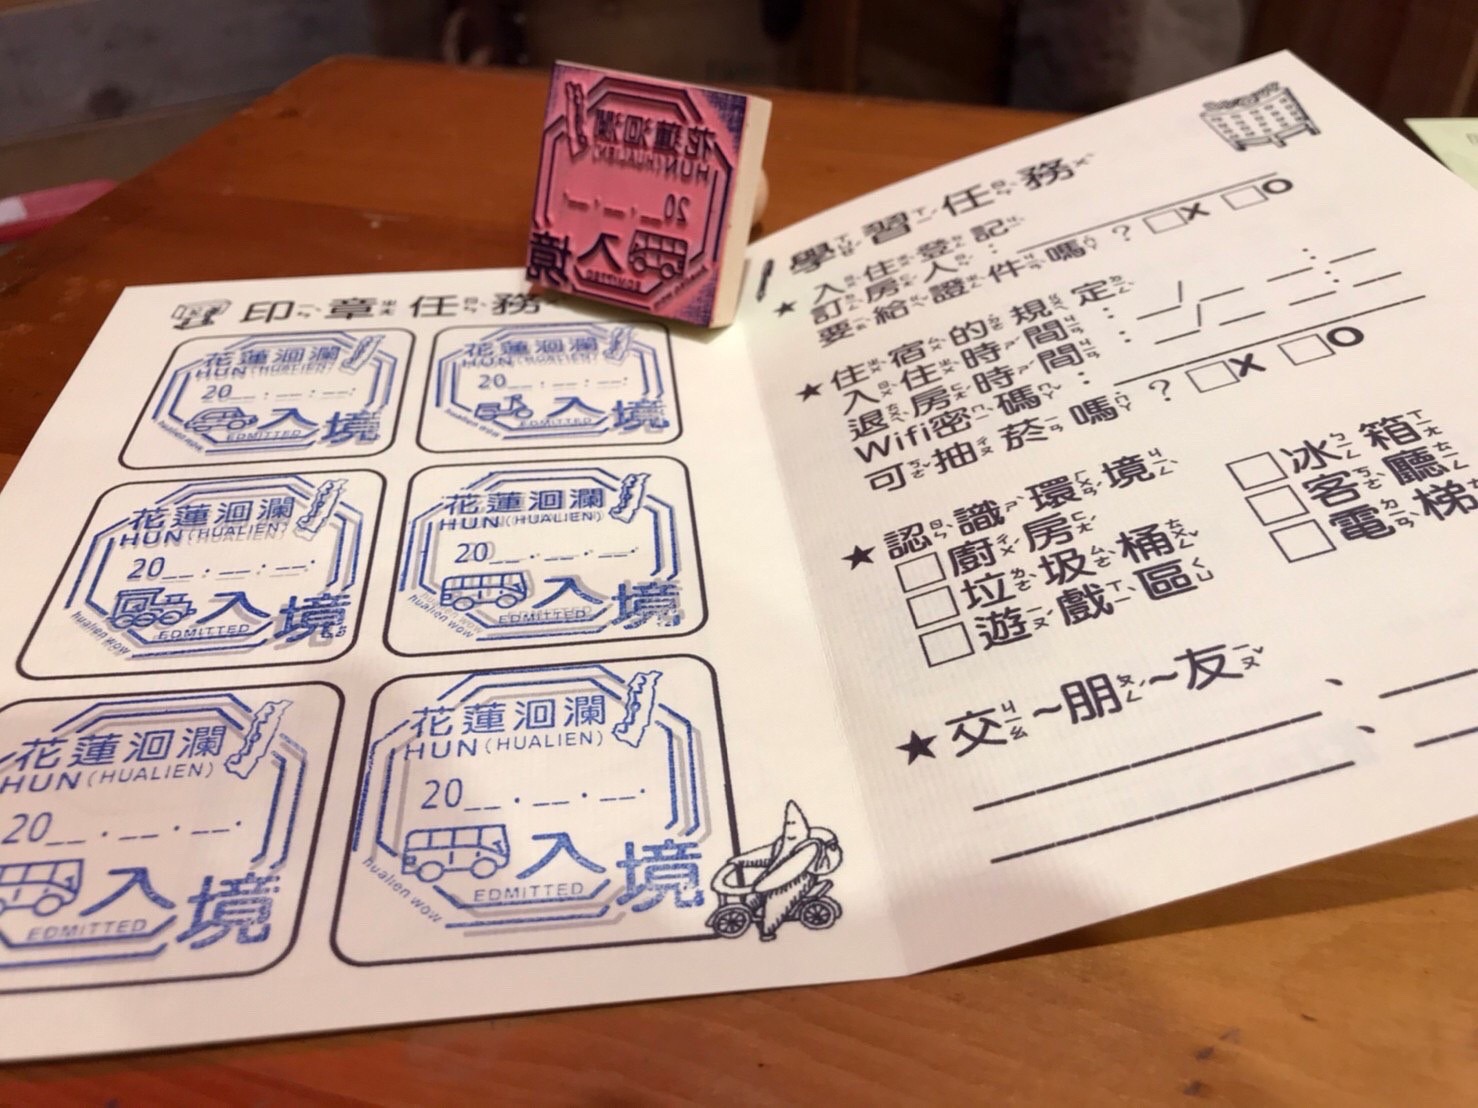 印章任務
花蓮洄瀾
HUN(HUALIEN)
20__.__.__.
入境
EDMITTED
hualien wow
花蓮洄瀾
HUN(HUALIEN)
20__.__.__.
入境
EDMITTED
hualien wow
花蓮洄瀾
HUN(HUALIEN)
20__.__.__.
入境
EDMITTED
hualien wow
花蓮洄瀾
HUN(HUALIEN)
20__.__.__.
入境
EDMITTED
hualien wow
花蓮洄瀾
HUN(HUALIEN)
20__.__.__.
入境
EDMITTED
花蓮洄瀾
HUN(HUALIEN)
20__.__.__.
入境
EDMITTED
hualien wow
花蓮洄瀾
HUN(HUALIEN)
20__.__.__.
入境
EDMITTED
學習任務
★入住登記
訂房人:________
要給證件嗎? □X □O
★住宿的規定
入住時間:__/__ __:__
退房時間:__/__ __:__
Wifi密碼:________
可抽菸嗎? □X □O
★認識環境
□廚房 □冰箱
□垃圾桶 □客廳
□遊戲區 □電梯
★交~朋~友
________、________
________、________